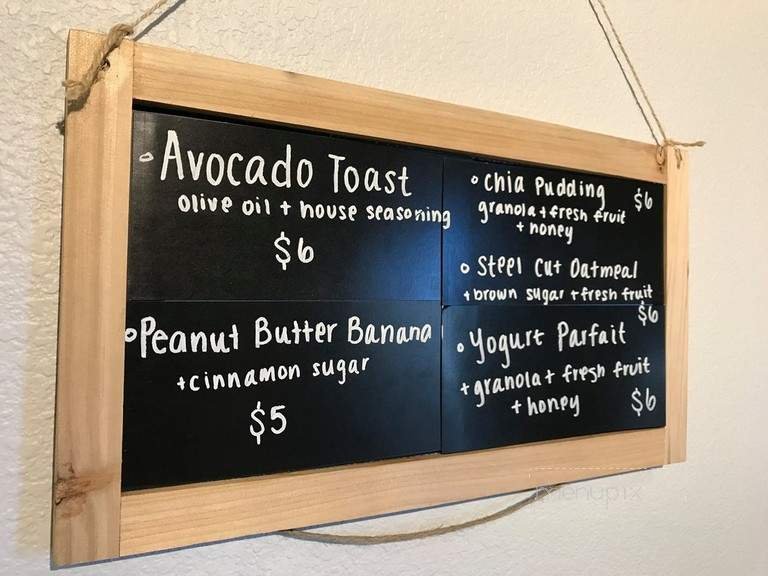 Avocado Toast
olive oil + house seasoning
$6
Peanut Butter Banana
+cinnamon sugar
$5
Chia Pudding $6
granola + fresh fruit
+ honey
Steel Cut Oatmeal
+brown sugar + fresh fruit
$6
Yogurt Parfait
+ granola + fresh fruit
+ honey $6
menupix